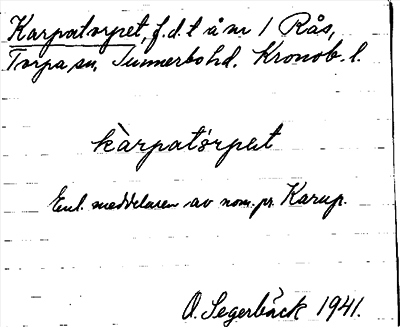 Karpatorpet, f.d. t å nr 1 Rås,
Torpa sn, Sunnerbo hd. Kronob. l.
kàrpatórpet
Enl. meddelaren av nom. pr. Karup.
O. Segerbäck 1941.